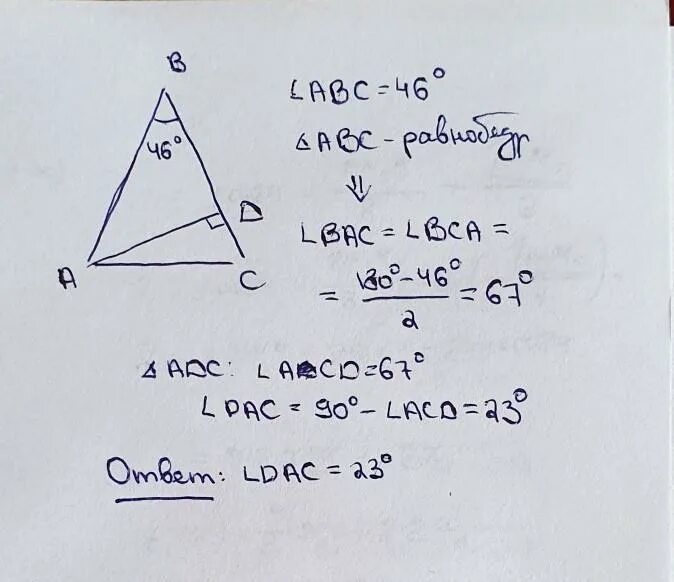 B
∠ABC = 46°
46°
△ABC - равнобедр
⇓
D
∠BAC = ∠BCA =
A
C
= 180° - 46° / 2 = 67°
△ADC: ∠ACD = 67°
∠DAC = 90° - ∠ACD = 23°
Ответ: ∠DAC = 23°